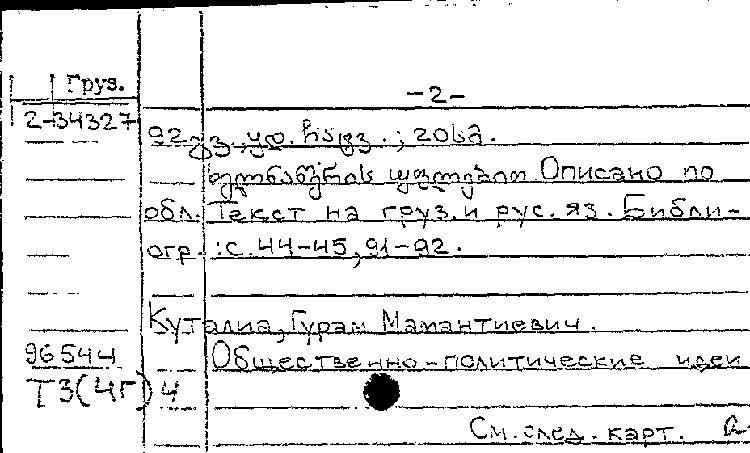 Груз.
-2-
2-34327
92 გვ., ყდ. ჩასვ. ; 20სმ.
ხელნაწერის უფლებით Описано по
обл. Текст на груз. и рус. яз. Библи-
огр.: с. 44-45, 91-92.
Куталиа, Гурам Мамантиевич.
96544 Общественно-политические идеи
Т3(4Г)4
См. след. карт.